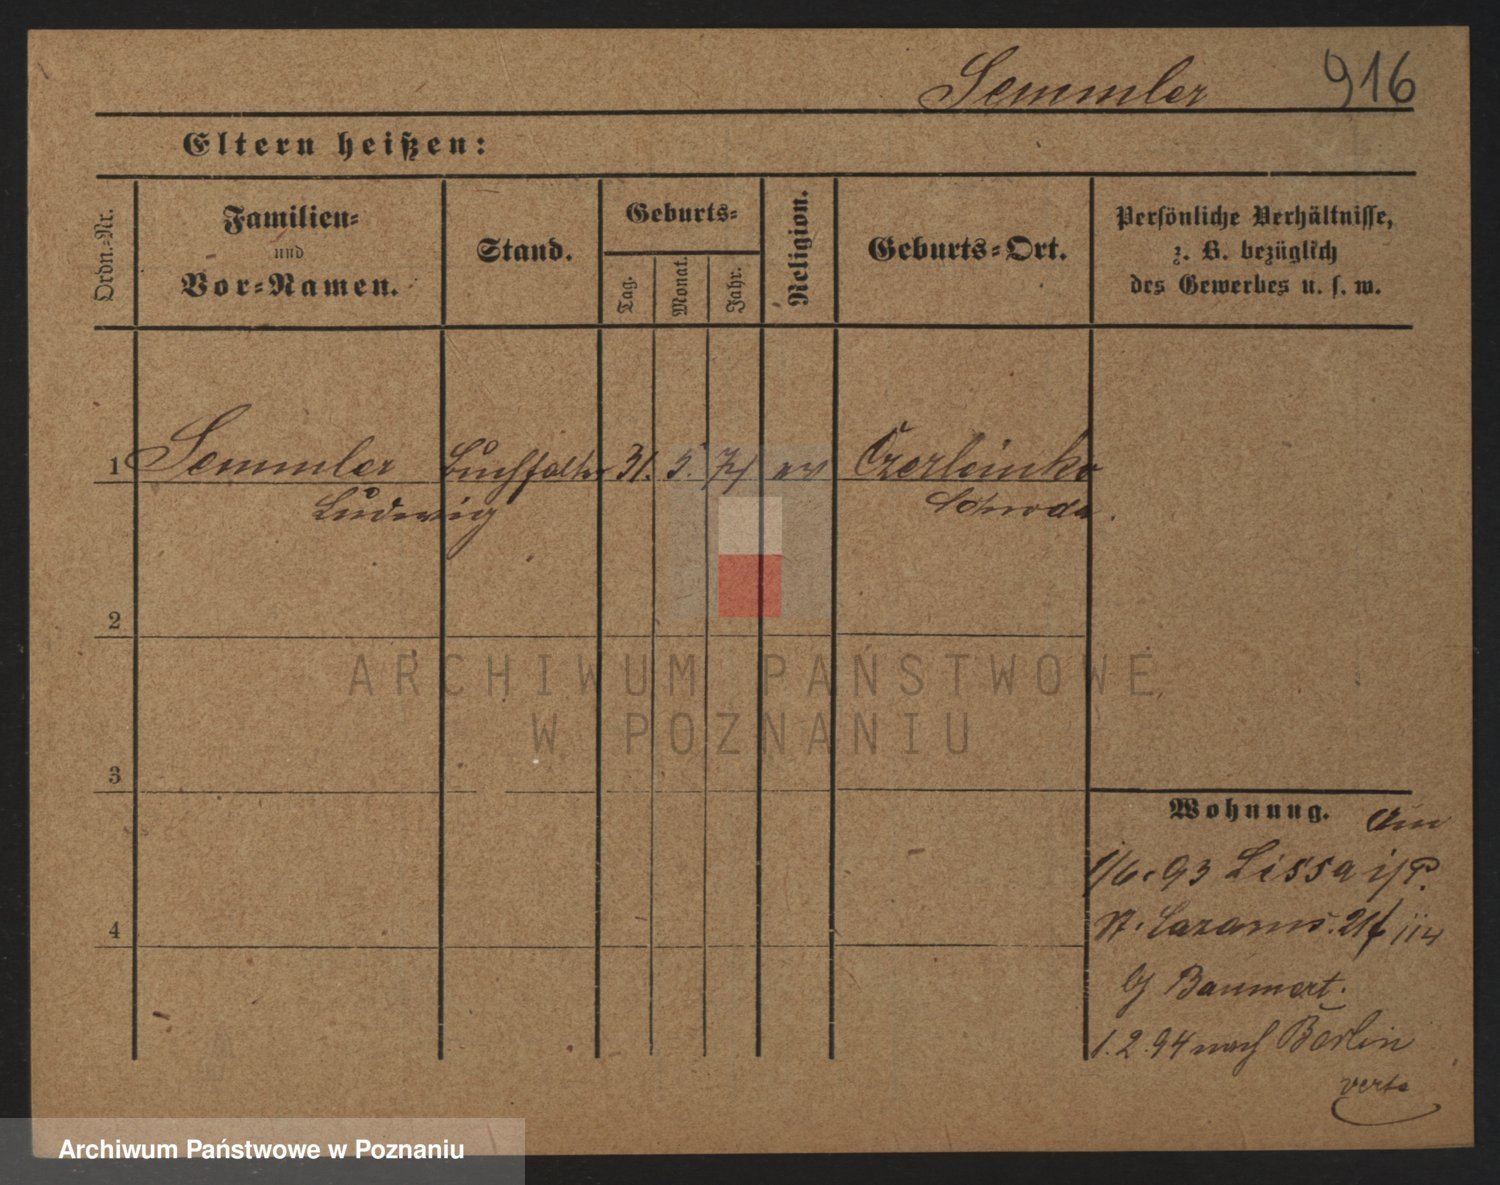 Semmler 916
Eltern heißen:
Ordn.-Nr.
Familien-
und
Vor-Namen.
Stand.
Geburts-
Tag.
Monat.
Jahr.
Religion.
Geburts-Ort.
Persönliche Verhältnisse,
z. B. bezüglich
des Gewerbes u. s. w.
1 Semmler Buchhalter 31. 5. 74 ev Czerleinko
Ludwig Schroda.
2
3
4
ARCHIWUM PAŃSTWOWE
W POZNANIU
Wohnung.
1/6. 93 Lissa i/P.
St. Lazarus. 21
Baumert.
1. 2. 94 nach Berlin
verte
Archiwum Państwowe w Poznaniu